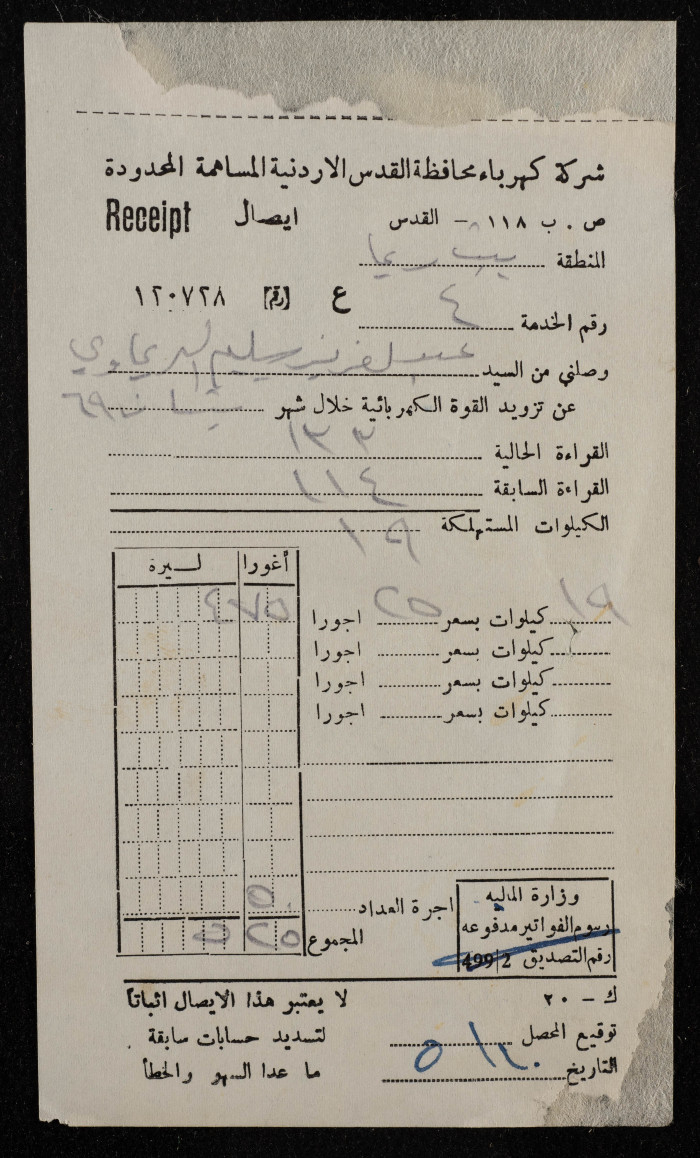 شركة كهرباء محافظة القدس الاردنية المساهمة المحدودة
ص . ب ١١٨ - القدس ايصال Receipt
المنطقة بيت ريما
ع رقم ١٢٠٧٢٨
رقم الخدمة ٤
وصلني من السيد عبد العزيز سليم الريماوي
عن تزويد القوة الكهربائية خلال شهر نيسان ٦٩
القراءة الحالية ١٣٣
القراءة السابقة ١١٤
الكيلوات المستهلكة ١٩
أغورا ليرة
١٩ كيلوات بسعر ٢٥ اجورا ٤ ٧٥
كيلوات بسعر اجورا
كيلوات بسعر اجورا
كيلوات بسعر اجورا
اجرة العداد ٥٠
المجموع ٥ ٢٥
وزارة الماليه
رسوم الفواتير مدفوعه
رقم التصديق 499/2
ك - ٢٠
لا يعتبر هذا الايصال اثباتاً
لتسديد حسابات سابقة
ما عدا السهو والخطأ
توقيع المحصل
التاريخ ٥/٢٠